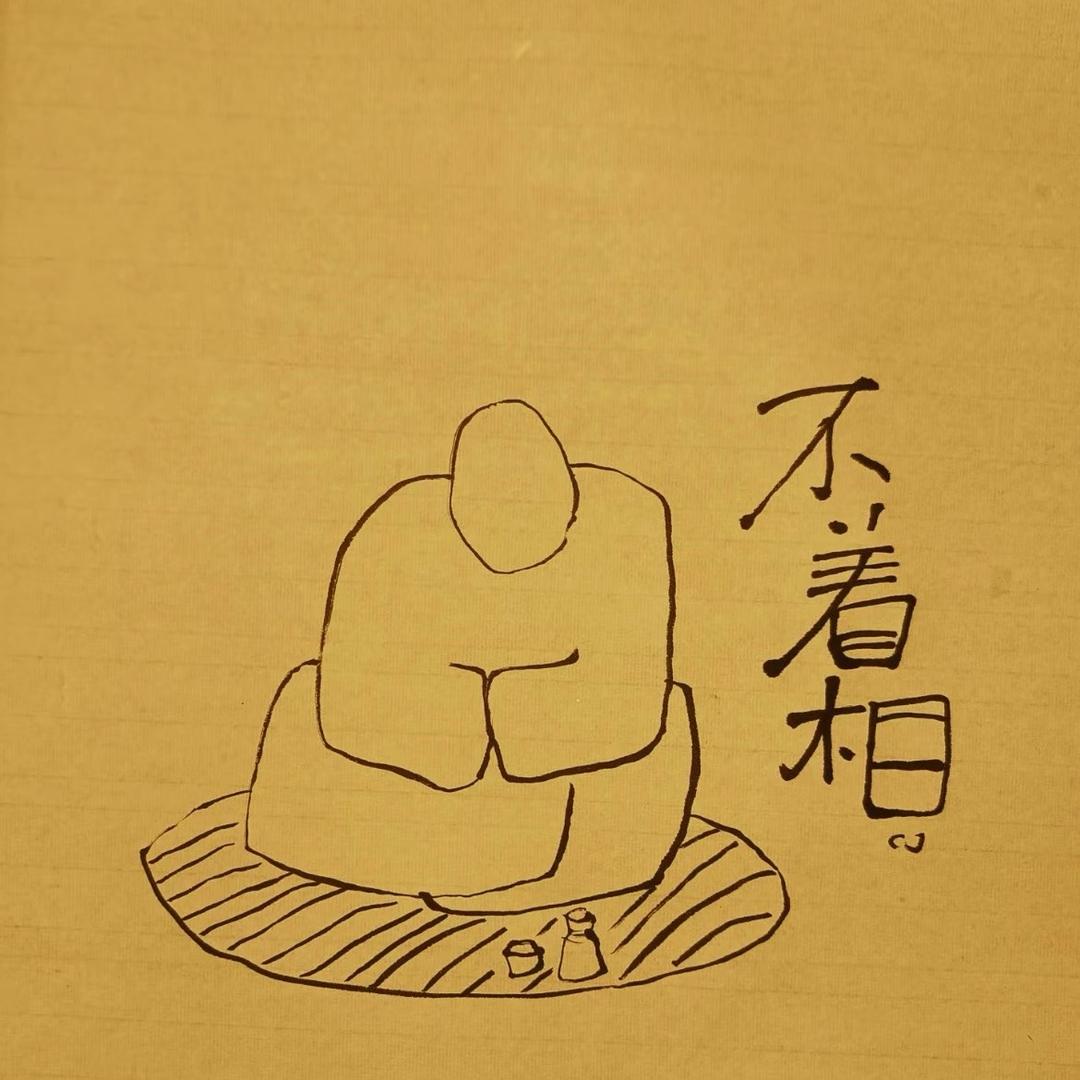 不着相